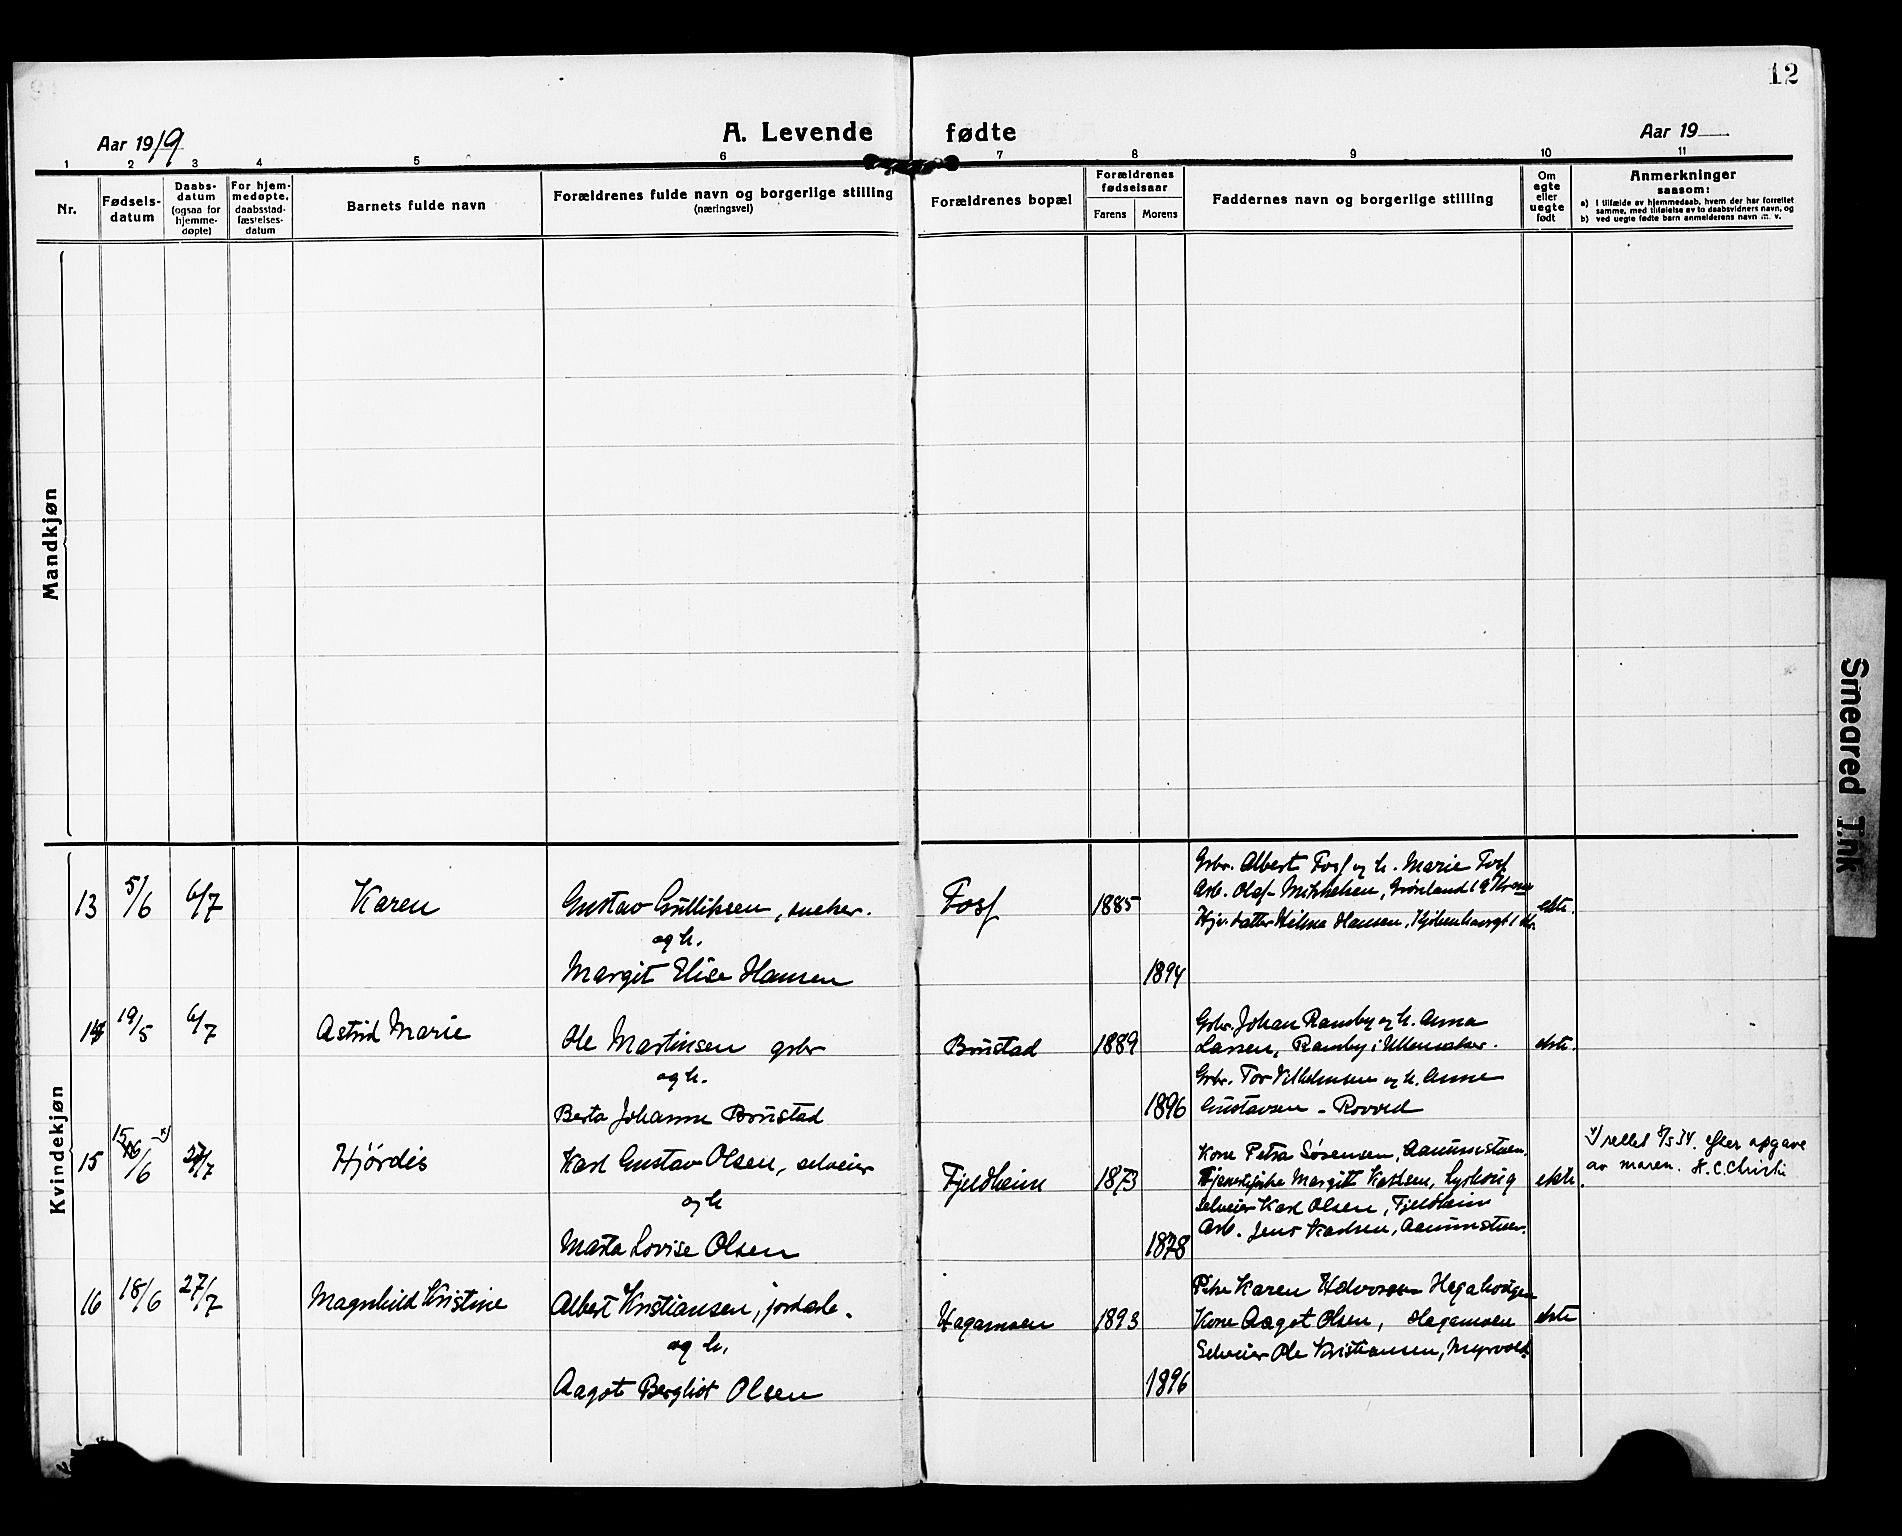 12
Aar 1919
A. Levende fødte
Aar 19
1 2 3 4 5 6 7 8 9 10 11
Nr.
Fødsels-
datum
Daabs-
datum
(ogsaa for
hjemme-
døpte)
For hjem-
medøpte,
daabsstad-
fæstelses-
datum
Barnets fulde navn
Forældrenes fulde navn og borgerlige stilling
(næringsvei)
Forældrenes bopæl
Forældrenes
fødselsaar
Farens Morens
Faddernes navn og borgerlige stilling
Om
egte
eller
uegte
født
Anmerkninger
saasom:
a) I tilfælde av hjemmedaab, hvem der har forrettet
samme, med tilføielse av to daabsvidners navn, og
b) ved uegte fødte børn anmelderens navn m. v.
Mandkjøn
Kvindekjøn
13 5/6 6/7 Karen
Gustav Gulliksen, sneker.
og h.
Margit Elise Hansen
Foss 1885
1894
Grbr. Albert Foss og h. Marie Foss
Arb. Olaf Mikkelsen, Grønland 19
Hilma Hansen,
ekte.
14 19/5 6/7 Astrid Marie
Ole Martinsen grbr
og h.
Berta Johanne Brustad
Brustad 1889
1896
Grbr. Johan Ramby og h. Anna
Larsen, Ramby i Ullensaker.
Grbr. Tor Vilhelmsen og h. Anne
Gustavsen - Rovold
ekte.
15 15/6 x) 27/7 Hjördis
Karl Gustav Olsen, selveier
og h
Marta Lovise Olsen
Fjeldheim 1873
1878
Kone Petra Sørensen, Aamunstuen.
Tjenestepike Margit Karlsen,
Selveier Karl Olsen, Fjeldheim
Arb. Jens Karlsen, Aamunstuen.
ekte
x) rettet 8/5 34. efter opgave
av moren. H. C. Christie
16 18/6 27/7 Magnhild Kristine
Albert Kristiansen, jordarb.
og h.
Aagot Bergliot Olsen
Hagamoen 1893
1896
Pike Karen Halvorsen
Kone Aagot Olsen, Hagamoen
Selveier Ole Kristiansen, Myrvold.
ekte
Smeared Ink